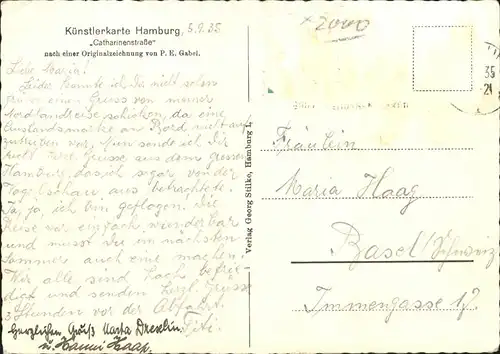 Künstlerkarte Hamburg, 5.9.35
„Catharinenstraße"
nach einer Originalzeichnung von P. E. Gabel.
Liebe Maria!
Leider konnte ich Dir nicht schon
früher einen Gruss von meiner
Nordlandreise schicken, da eine
Auslandsmarke an Bord nicht auf-
zutreiben war. Nun sende ich Dir
recht herzl. Grüsse aus dem grossen
Hamburg, das ich sogar von der
Vogelschau aus betrachtete.
Ja, ja, ich bin geflogen. Die
Reise war einfach wunderbar
und musst Du im nächsten
Sommer auch eine machen.
Wir alle sind hoch befrie
digt und senden herzl. Grüsse
3 Stunden vor der Abfahrt.
Herzlichen Gruß Marta Drexlin
u. Hanni Haap.
Verlag Georg Stilke, Hamburg 1.
2000
35
Fräulein
Maria Haag
Basel/Schweiz
Immengasse 17